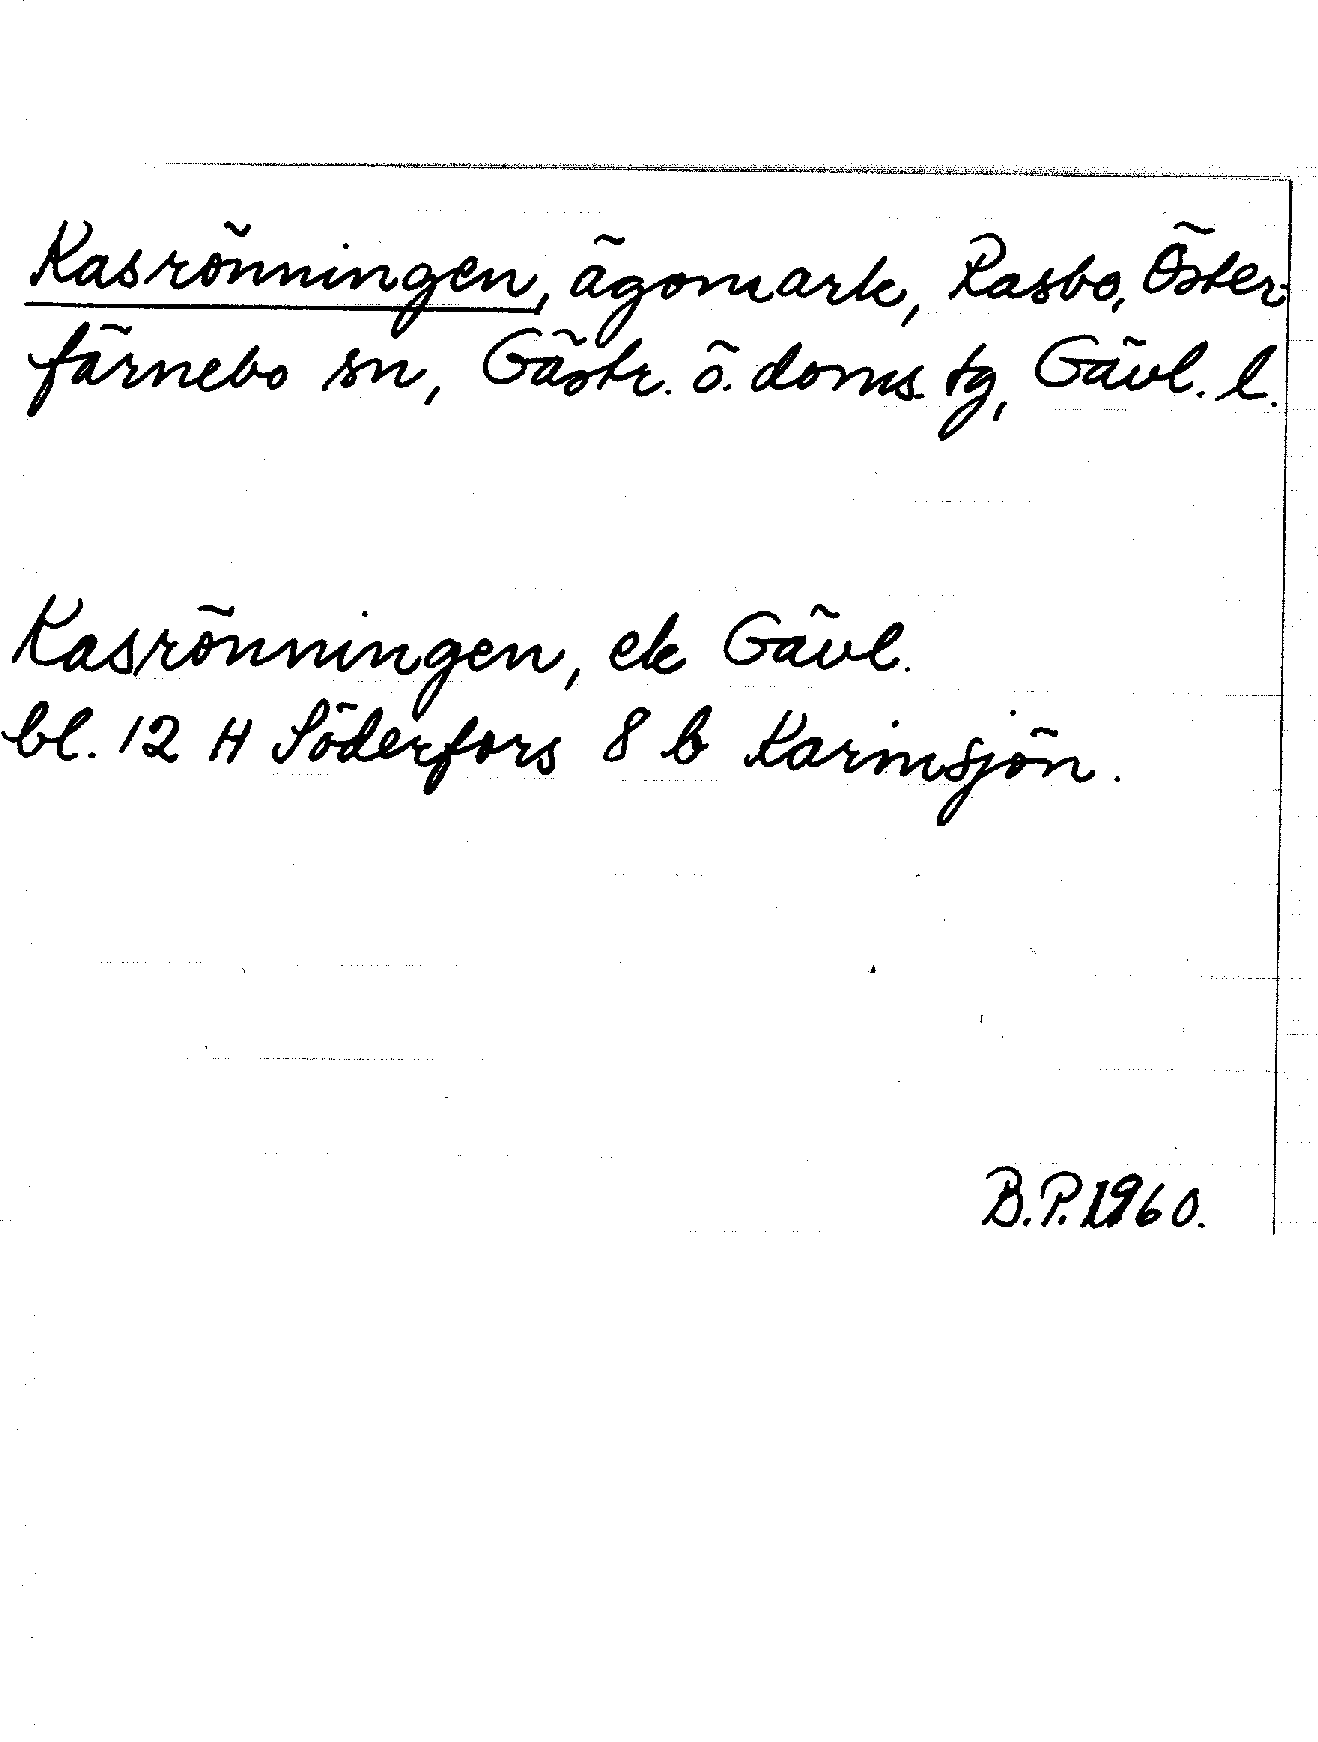 Kasrönningen, ägomark, Rasbo, Öster-
färnebo sn, Gästr. ö. doms. tg, Gävl. l.
Kasrönningen, ek Gävl.
bl. 12 H Söderfors 8 b Karinsjön.
B.P. 1960.